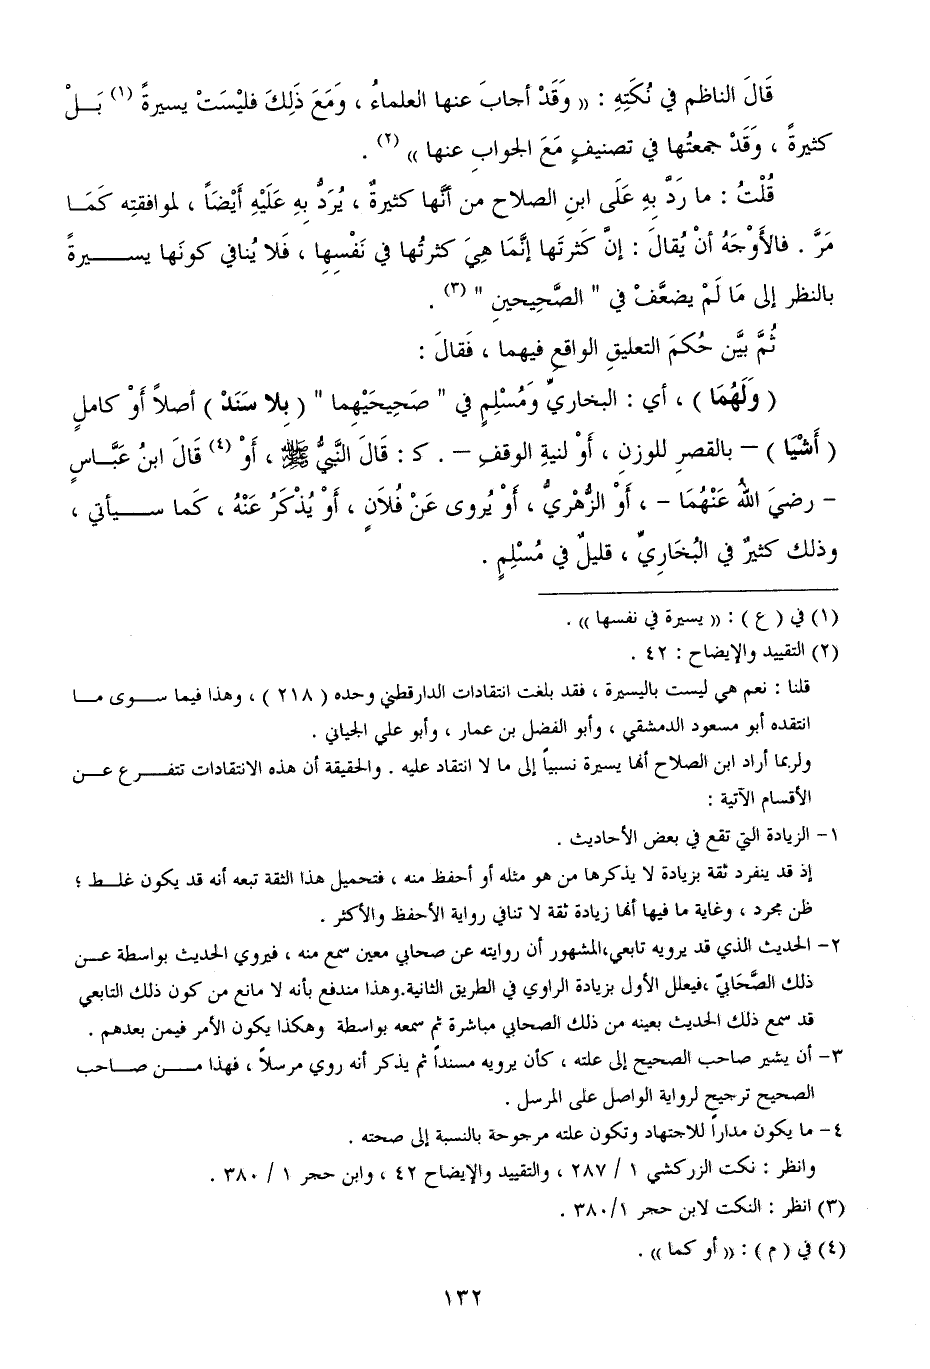 قَالَ الناظم في نُكَتِهِ : « وَقَدْ أجابَ عنها العلماءُ ، وَمَعَ ذَلِكَ فليْسَتْ يسيرةً (١) بَــلْ
كثيرةً ، وَقَدْ جمعتُها في تصنيفٍ مَعَ الجوابِ عنها » (٢) .
قُلْتُ : ما رَدَّ بِهِ عَلَى ابنِ الصلاح من أنَّها كثيرةٌ ، يُرَدُّ بِهِ عَلَيْهِ أَيْضَاً ، لموافقتِه كَمَـا
مَرَّ . فالأَوْجَهُ أنْ يُقالَ : إنَّ كَثرتَها إنَّمَا هِيَ كثرتُها في نَفْسِها ، فَلا يُنافي كونَها يســــيرةً
بالنظر إلى مَا لَمْ يضعَّفْ في " الصَّحِيحينِ " (٣) .
ثُمَّ بيَّن حُكمَ التعليقِ الواقعِ فيهما ، فَقالَ :
( وَلَهُمَا ) ، أي : البخاريِّ وَمُسْلِمٍ في " صَحِيحَيْهِما " ( بِلا سَنَدْ ) أصلاً أَوْ كاملٍ
( أَشْيَا ) – بالقصرِ للوزنِ ، أَوْ لنيةِ الوقفِ – . كـ : قَالَ النَّبِيُّ ﷺ ، أَوْ (٤) قَالَ ابنُ عَبَّــاسٍ
– رضيَ اللهُ عَنْهُمَا – ، أَوْ الزُّهْريُّ ، أَوْ يُروى عَنْ فُلاَنٍ ، أَوْ يُذْكَرُ عَنْهُ ، كَما ســـيأتي ،
وذلك كثيرٌ في البُخَارِيِّ ، قليلٌ في مُسْلِمٍ .
(١) في ( ع ) : « يسيرة في نفسها » .
(٢) التقييد والإيضاح : ٤٢ .
قلنا : نعم هي ليست باليسيرة ، فقد بلغت انتقادات الدارقطني وحده ( ٢١٨ ) ، وهذا فيما ســوى مــا
انتقده أبو مسعود الدمشقي ، وأبو الفضل بن عمار ، وأبو علي الجياني .
ولربما أراد ابن الصلاح أنها يسيرة نسبياً إلى ما لا انتقاد عليه . والحقيقة أن هذه الانتقادات تتفـــرع عــن
الأقسام الآتية :
١- الزيادة التي تقع في بعض الأحاديث .
إذ قد ينفرد ثقة بزيادة لا يذكرها من هو مثله أو أحفظ منه ، فتحميل هذا الثقة تبعه أنه قد يكون غلــط ؛
ظن مجرد ، وغاية ما فيها أنها زيادة ثقة لا تنافي رواية الأحفظ والأكثر .
٢- الحديث الذي قد يرويه تابعي،المشهور أن روايته عن صحابي معين سمع منه ، فيروي الحديث بواسطة عــن
ذلك الصَّحَابيّ ،فيعلل الأول بزيادة الراوي في الطريق الثانية.وهذا مندفع بأنه لا مانع من كون ذلك التابعي
قد سمع ذلك الحديث بعينه من ذلك الصحابي مباشرة ثم سمعه بواسطة وهكذا يكون الأمر فيمن بعدهم .
٣- أن يشير صاحب الصحيح إلى علته ، كأن يرويه مسنداً ثم يذكر أنه روي مرسلاً ، فهذا مـــن صــاحب
الصحيح ترجيح لرواية الواصل على المرسل .
٤- ما يكون مداراً للاجتهاد وتكون علته مرجوحة بالنسبة إلى صحته .
وانظر : نكت الزركشي ١ / ٢٨٧ ، والتقييد والإيضاح ٤٢ ، وابن حجر ١ / ٣٨٠ .
(٣) انظر : النكت لابن حجر ٣٨٠/١ .
(٤) في ( م ) : « أو كما » .
١٣٢